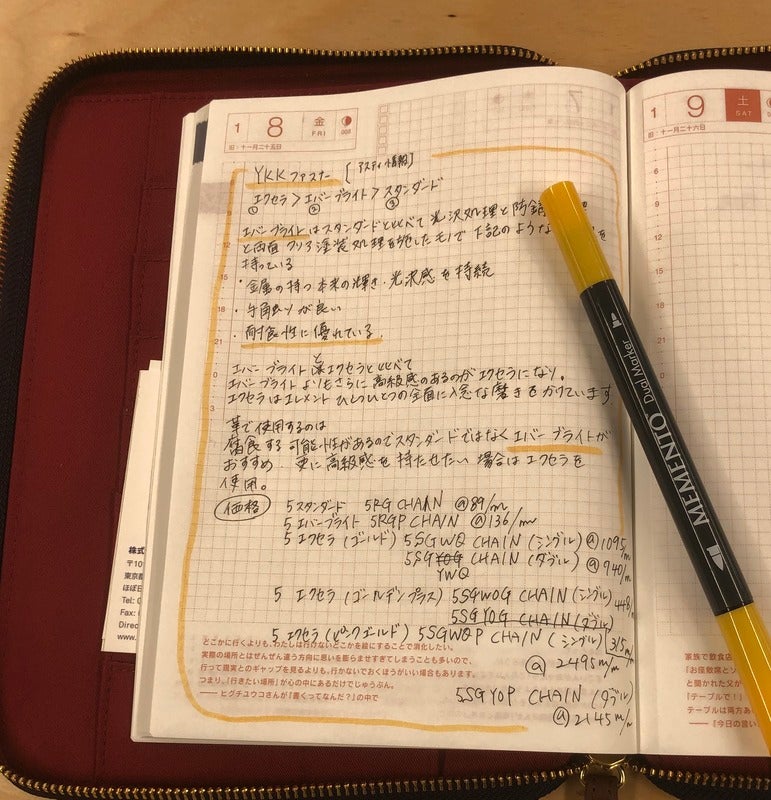 1 8 金 FRI 008
旧・十一月二十五日
YKK ファスナー [アスティ情報]
エクセラ > エバーブライト > スタンダード
① ② ③
エバーブライトはスタンダードと比べて光沢処理と防錆
と両面クリア塗装処理を施したモノで下記のような を
持っている
・金属の持つ本来の輝き、光沢感を持続
・手触りが良い
・耐食性に優れている。
エバーブライトとエクセラと比べて
エバーブライトよりもさらに高級感のあるのがエクセラになり。
エクセラはエレメントひとつひとつの全面に入念な磨きをかけています
革で使用するのは
腐食する可能性があるのでスタンダードではなくエバーブライトが
おすすめ。更に高級感を持たせたい場合はエクセラを
使用。
価格 5スタンダード 5RG CHAIN @89/m
5エバーブライト 5RGP CHAIN @136/m
5エクセラ(ゴールド) 5SGWQ CHAIN (シングル) @1095/m
5SG YOG CHAIN (ダブル) @940/m
YWQ
5 エクセラ(ゴールデンプラス) 5SGWOG CHAIN (シングル)
5SGYOG CHAIN (ダブル)
5 エクセラ(ピンクゴールド) 5SGWOP CHAIN (シングル)
@2495m/m
5SGYOP CHAIN (ダブル)
@2145m/m
どこかに行くよりも、わたしは行けないどこかを絵にすることで消化したい。
実際の場所とはぜんぜん違う方向に思いを膨らませすぎてしまうことも多いので、
行って現実とのギャップを見るよりも、行かないでおくほうがいい場合もあります。
つまり、「行きたい場所」が心の中にあるだけでじゅうぶん。
——ヒグチユウコさんが『書くってなんだ?』の中で
1 9 土 SAT
旧・十一月二十六日
家族で飲食店
「お座敷席と
と聞かれた父が
「テーブルで!」
テーブルは両方あ
——『今日の言い
MEMENTO Dual Marker
株式
〒10
東京都
ほぼ日
Tel: 0
Fax: 0
Direc
www.